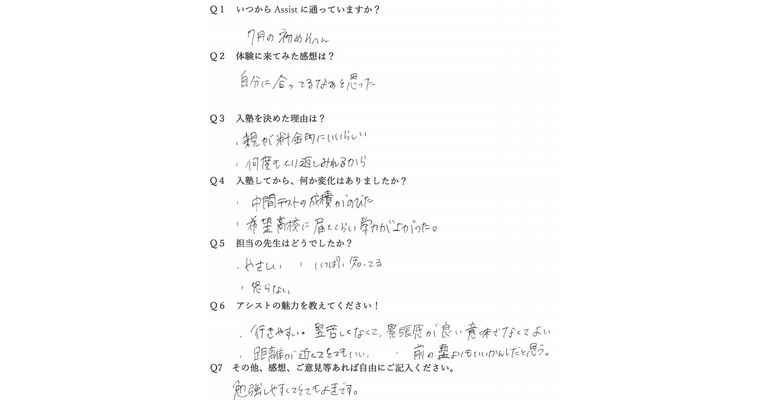 Q1 いつから Assist に通っていますか？
7月の初めへん
Q2 体験に来てみた感想は？
自分に合ってるなぁと思った
Q3 入塾を決めた理由は？
・親が料金的にいいらしい
・何度もくり返しみれるから
Q4 入塾してから、何か変化はありましたか？
・中間テストの成績がのびた
・希望高校に届くくらい学力が上がった。
Q5 担当の先生はどうでしたか？
・やさしい ・いっぱい知ってる
・怒らない
Q6 アシストの魅力を教えてください！
・行きやすい。堅苦しくなくて、緊張感が良い意味でなくてよい
・距離が近くてとてもいい。 ・前の塾よりもいいかんじだと思う。
Q7 その他、感想、ご意見等あれば自由にご記入ください。
勉強しやすくてとてもよきです。